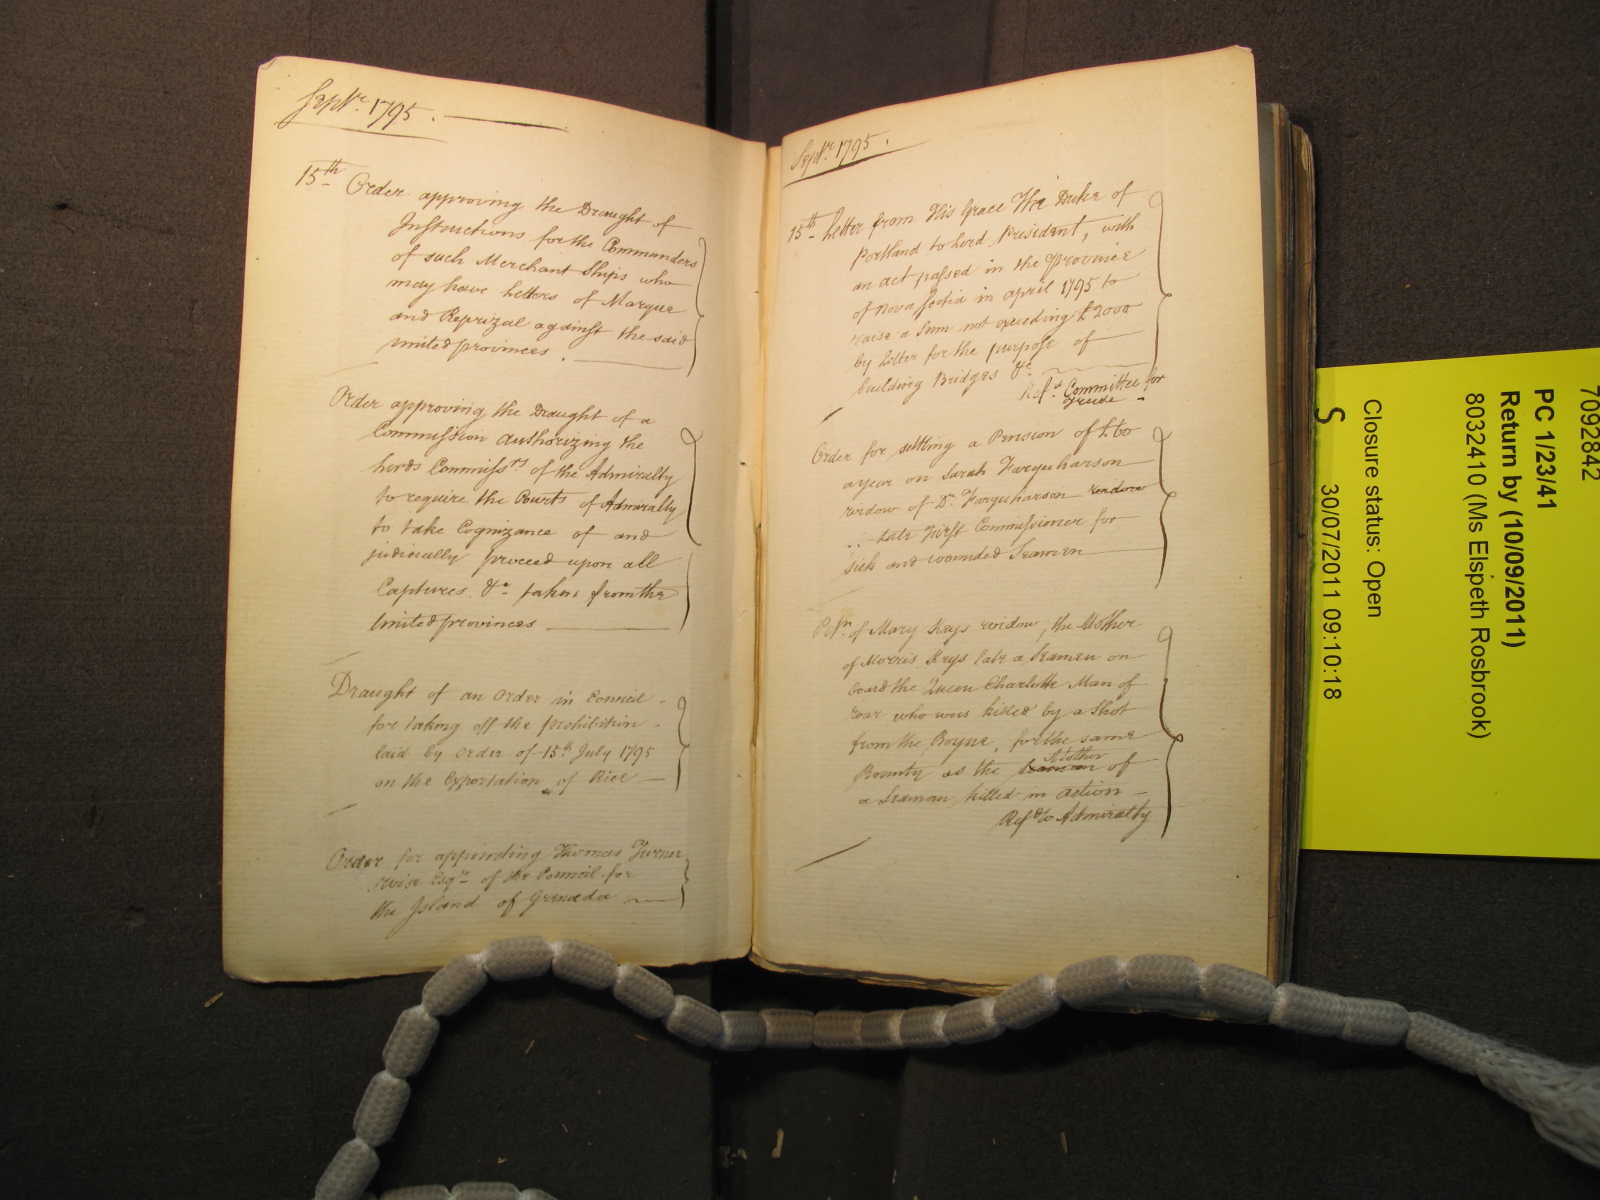 Septr. 1795.
15th Order approving the Draught of
Instructions for the Commanders
of such Merchant Ships who
may have Letters of Marque
and Reprizal against the said
United provinces.
Order approving the Draught of a
Commission authorizing the
Lords Commissrs of the Admiralty
to require the Courts of Admiralty
to take Cognizance of and
judicially proceed upon all
Captures &c taken from the
United provinces
Draught of an Order in Council
for taking off the prohibition
laid by Order of 15th July 1795
on the Exportation of Rice
Order for appointing Thomas Turner
Wise Esqr of the Council for
the Island of Grenada
Septr. 1795.
15th Letter from His Grace The Duke of
Portland to Lord President, with
an act passed in the province
of Nova Scotia in april 1795 to
raise a Sum not exceeding £2000
by Lotter for the purpose of
building Bridges &c
Refd Committee for
Trade
Order for settling a Pension of £60
a year on Sarah Farquharson
widow of Dr Farquharson widow
late First Commissioner for
sick and wounded Seamen
Petn. of Mary Keys widow, the Mother
of Morris Keys late a Seaman on
board the Queen Charlotte Man of
war who was killed by a shot
from the Boyne, for the same
Bounty as the Seaman Mother of
a Seaman killed in action
Refd to Admiralty
7092842
PC 1/23/41
Return by (10/09/2011)
8032410 (Ms Elspeth Rosbrook)
Closure status: Open
S 30/07/2011 09:10:18